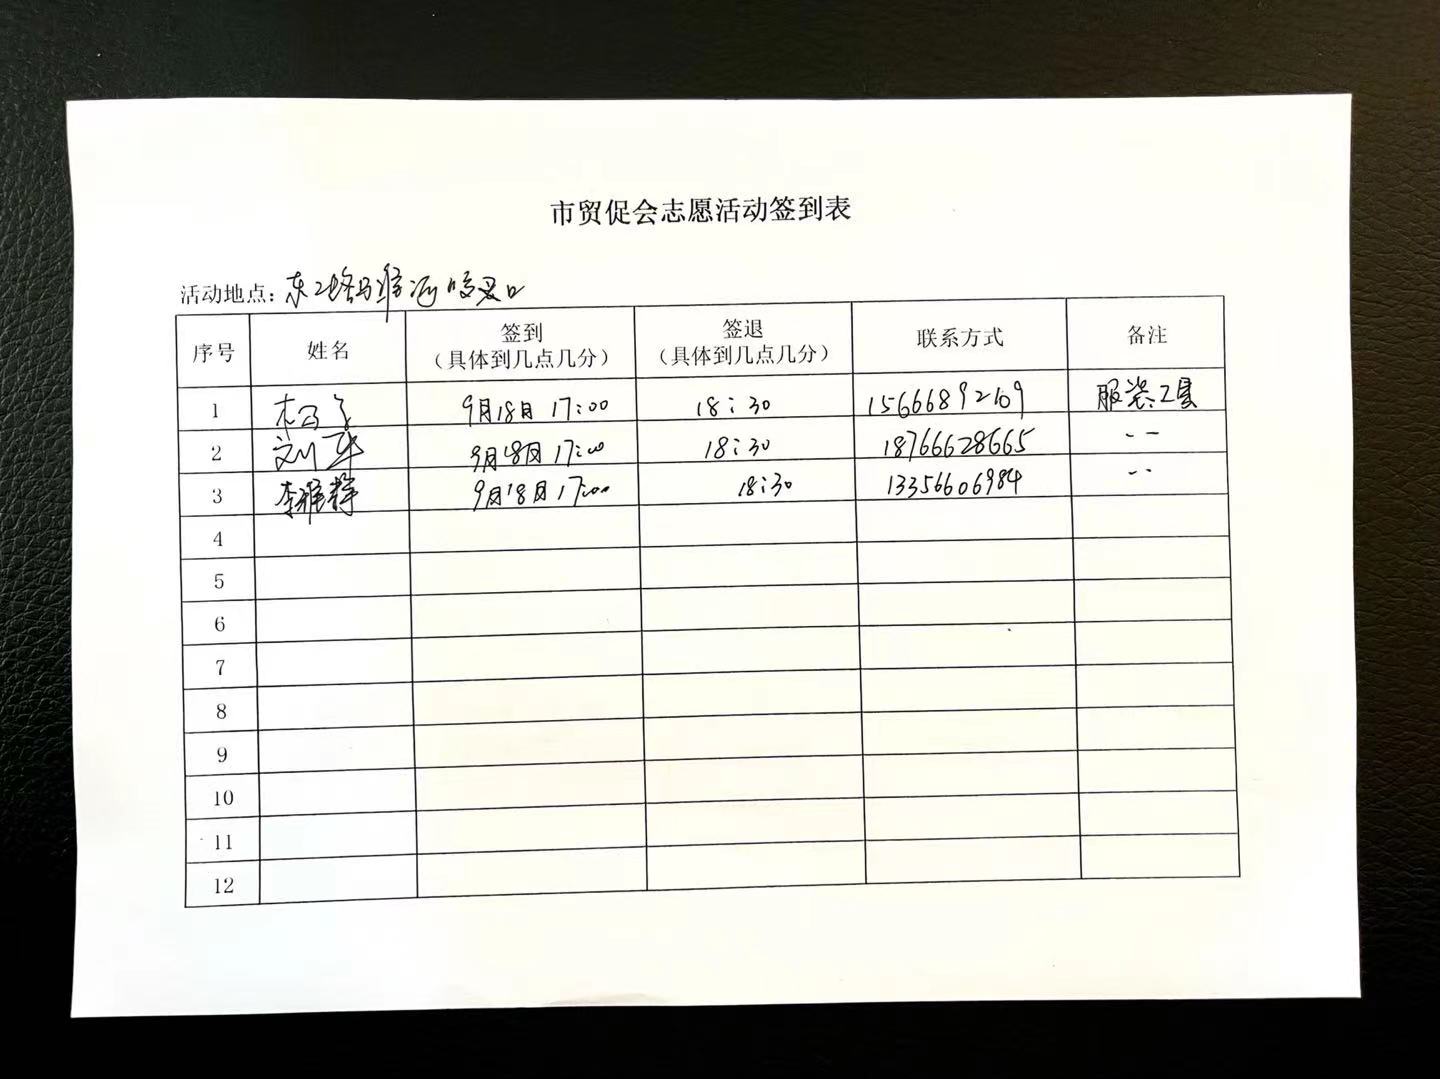 市贸促会志愿活动签到表
活动地点：东二路
序号 姓名 签到 签退 联系方式 备注
（具体到几点几分） （具体到几点几分）
1 9月18日 17:00 18:30 15666892169 服装工具
2 刘军 9月18日 17:00 18:30 18766628665 --
3 李雅静 9月18日 17:00 18:30 13356606984 --
4
5
6
7
8
9
10
11
12